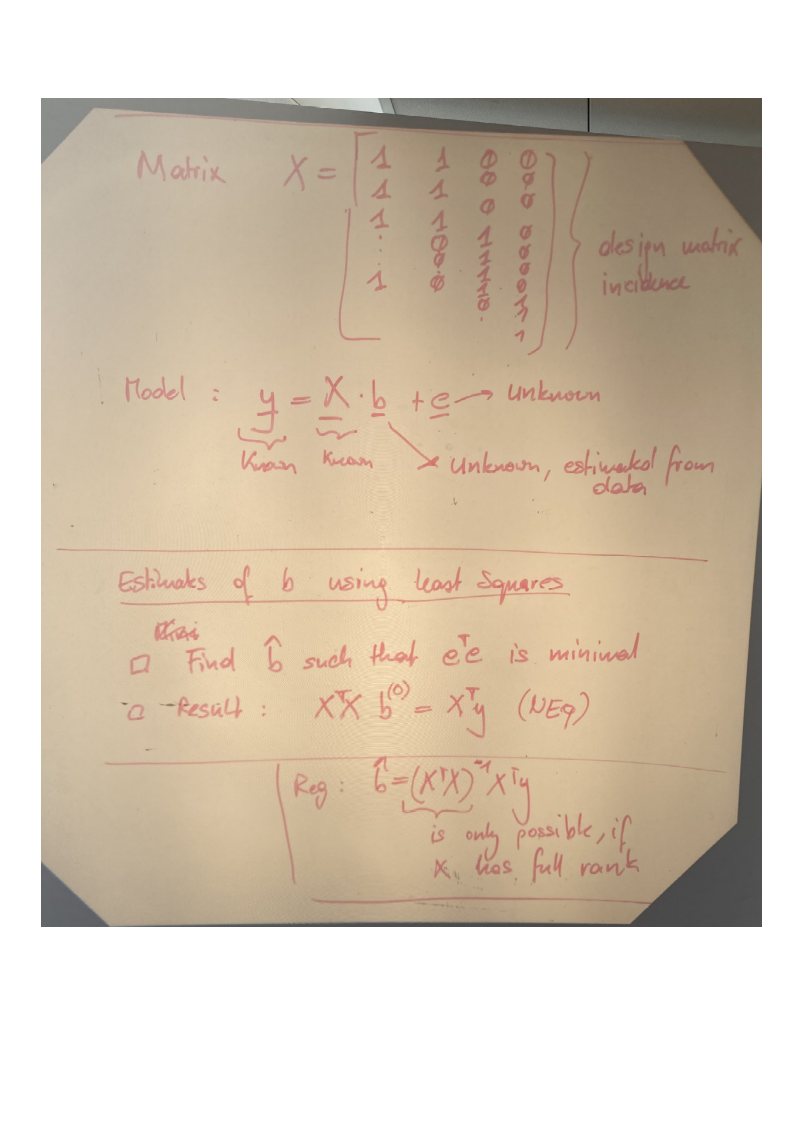 Matrix X = [ 1 1 0 0
1 1 0 0
1 1 0 0
. 0 1 0
. 0 1 0
1 0 1 0
1 0
0 1
. 1
1 ] } design matrix
incidence
Model : y = X · b + e → Unknown
Known Known → Unknown, estimated from
data
Estimates of b using least Squares
□ Find b̂ such that eᵀe is minimal
□ Result : XᵀX b⁽⁰⁾ = Xᵀy (NEq)
Reg : b̂ = (XᵀX)⁻¹Xᵀy
is only possible, if
X has full rank